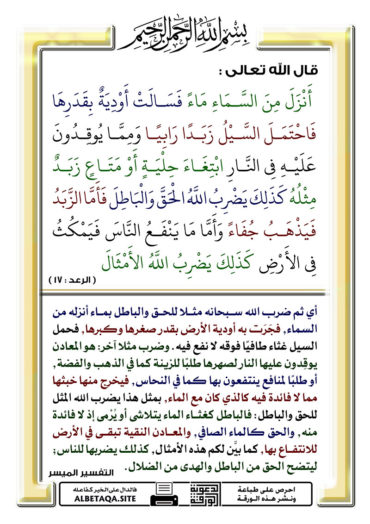 بسم الله الرحمن الرحيم
قال الله تعالى :
أَنْزَلَ مِنَ السَّمَاءِ مَاءً فَسَالَتْ أَوْدِيَةٌ بِقَدَرِهَا
فَاحْتَمَلَ السَّيْلُ زَبَدًا رَابِيًا وَمِمَّا يُوقِدُونَ
عَلَيْهِ فِي النَّارِ ابْتِغَاءَ حِلْيَةٍ أَوْ مَتَاعٍ زَبَدٌ
مِثْلُهُ كَذَلِكَ يَضْرِبُ اللَّهُ الْحَقَّ وَالْبَاطِلَ فَأَمَّا الزَّبَدُ
فَيَذْهَبُ جُفَاءً وَأَمَّا مَا يَنْفَعُ النَّاسَ فَيَمْكُثُ
فِي الأَرْضِ كَذَلِكَ يَضْرِبُ اللَّهُ الأَمْثَالَ
( الرعد : ١٧ )
أي ثم ضرب الله سبحانه مثلا للحق والباطل بماء أنزله من
السماء، فجَرَت به أودية الأرض بقدر صغرها وكبرها، فحمل
السيل غثاء طافيًا فوقه لا نفع فيه . وضرب مثلا آخر: هو المعادن
يوقِدون عليها النار لصهرها طلبًا للزينة كما في الذهب والفضة ،
أو طلبًا لمنافع ينتفعون بها كما في النحاس، فيخرج منها خبثها
مما لا فائدة فيه كالذي كان مع الماء، بمثل هذا يضرب الله المثل
للحق والباطل: فالباطل كغثاء الماء يتلاشى أو يُرْمى إذ لا فائدة
منه، والحق كالماء الصافي، والمعادن النقية تبقى في الأرض
للانتفاع بها، كما بيَّن لكم هذه الأمثال، كذلك يضربها للناس؛
ليتضح الحق من الباطل والهدى من الضلال. التفسير الميسر
احرص على طباعة
ونشر هذه الورقة
الدعوية
الورقة
فالدال على الخير كفاعله
ALBETAQA.SITE